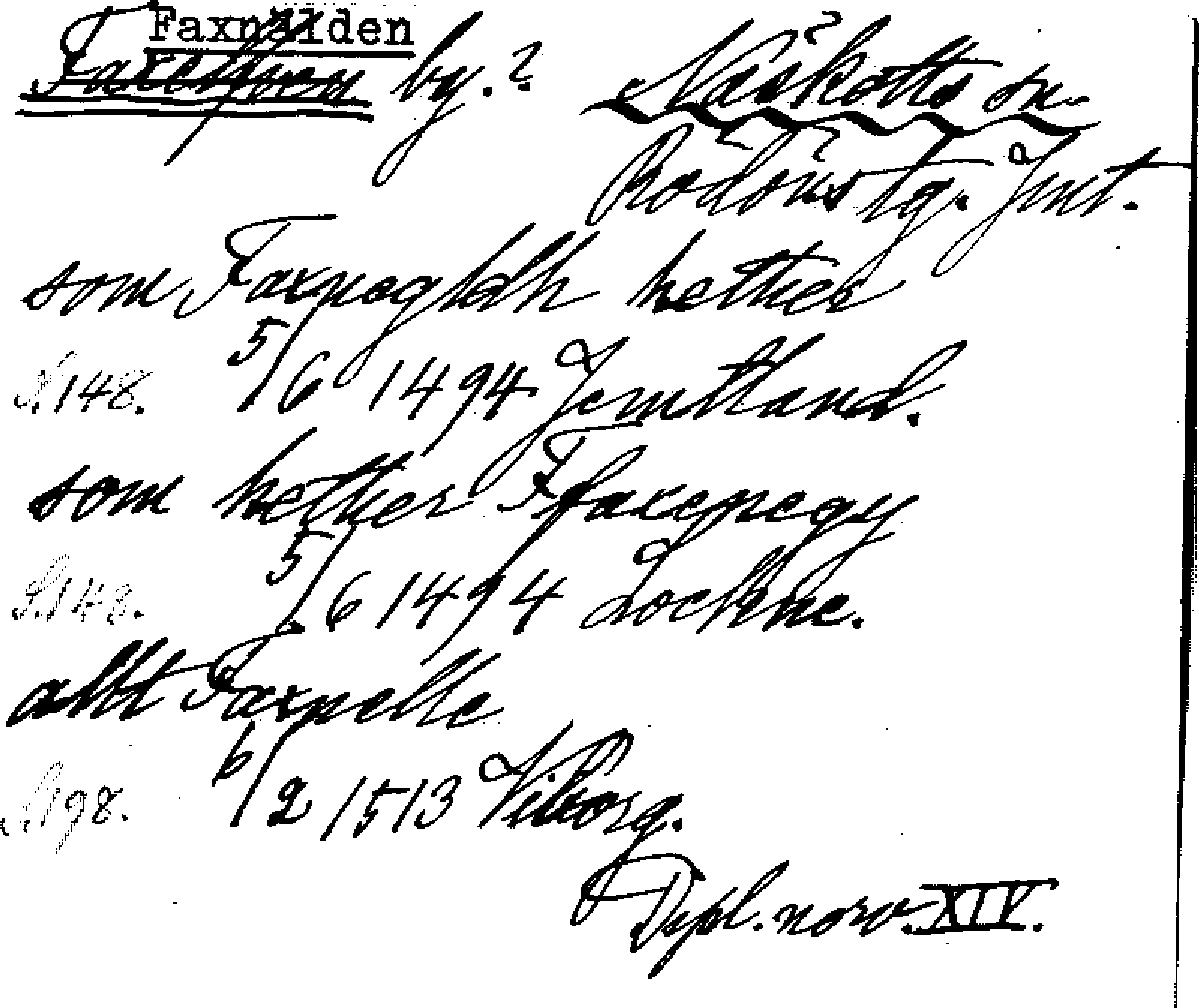 Faxnälden
Faxelfven by.? Näskotts sn.
Rödöns tg. Jmt.
som Faxnegldh hether
S.148. 5/6 1494 Jemtland.
som hether Ffaxenegy
S.148. 5/6 1494 Lockne.
altt Faxnelle
S.198. 6/2 1513 Viborg.
Dipl. norv. XIV.